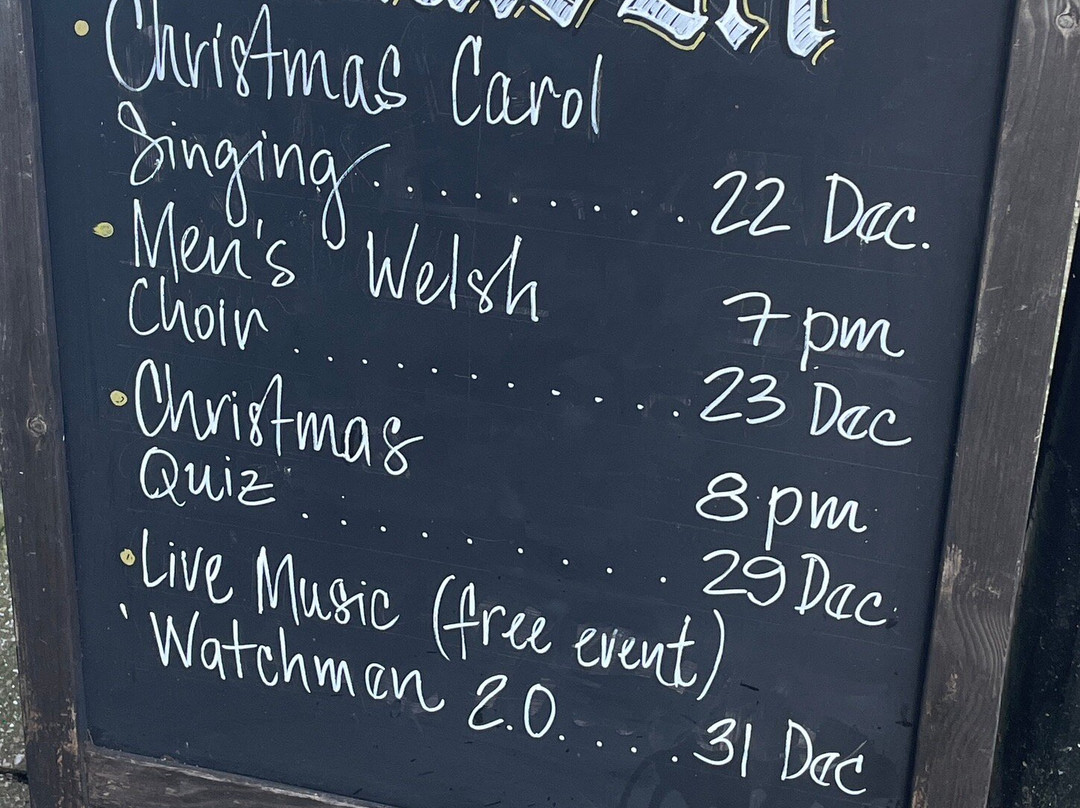 • Christmas Carol
Singing......... 22 Dec.
• Men's Welsh 7 pm
Choir .......... 23 Dec
• Christmas 8 pm
Quiz ........ 29 Dec.
• Live Music (free event)
Watchman 2.0..... 31 Dec